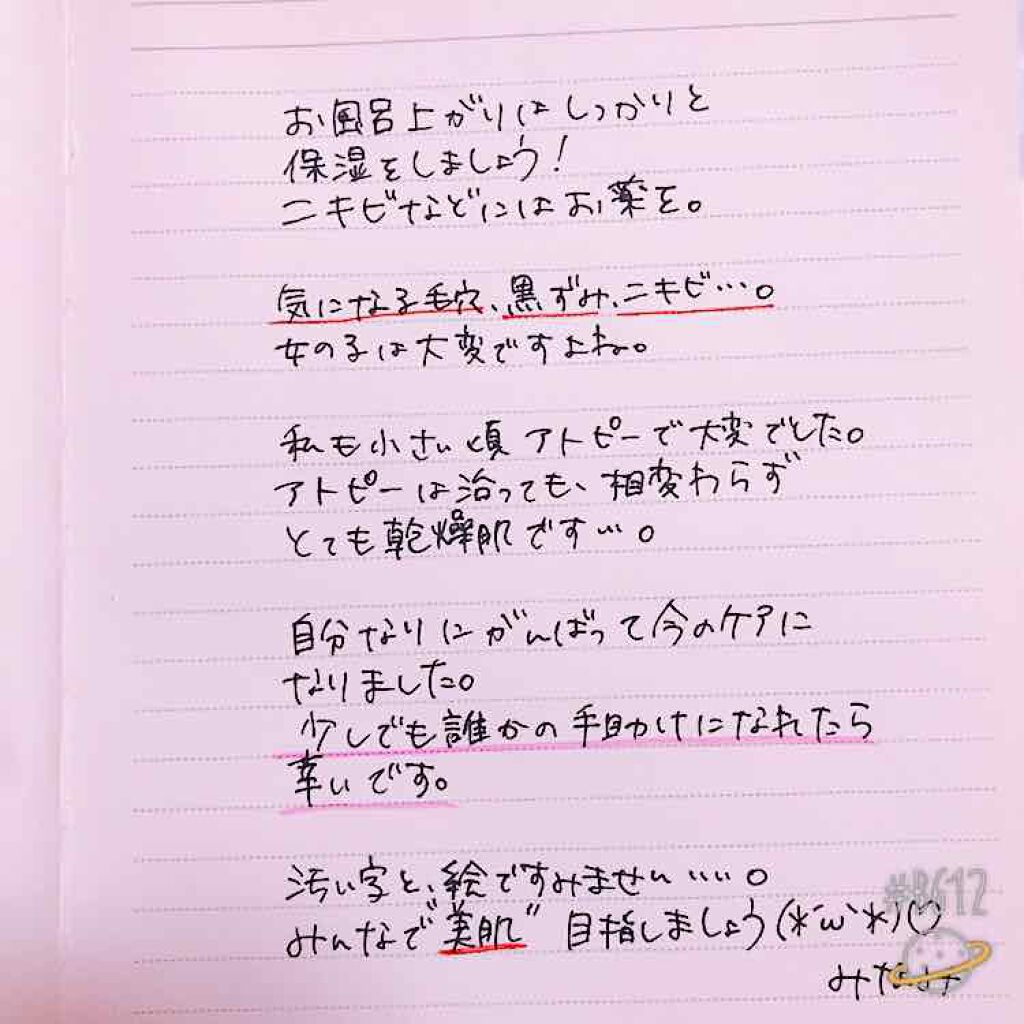 お風呂上がりはしっかりと
保湿をしましょう!
ニキビなどにはお薬を。
気になる毛穴、黒ずみ、ニキビ…。
女の子は大変ですよね。
私も小さい頃アトピーで大変でした。
アトピーは治っても、相変わらず
とても乾燥肌です…。
自分なりにがんばって今のケアに
なりました。
少しでも誰かの手助けになれたら
幸いです。
汚い字と、絵ですみません….。
みんなで"美肌"目指しましょう(*´ω`*)♡
みなみ
#B612